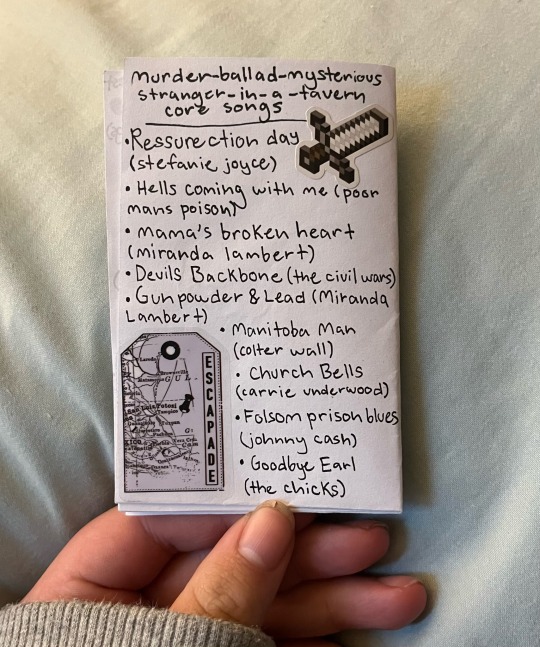 murder-ballad-mysterious
stranger-in-a-tavern
core songs
• Ressurection day
(stefanie joyce)
• Hells coming with me (poor
mans poison)
• mama's broken heart
(miranda lambert)
• Devils Backbone (the civil wars)
• Gunpowder & Lead (Miranda
Lambert)
• Manitoba Man
(colter wall)
• Church Bells
(carrie underwood)
• Folsom prison blues
(johnny cash)
• Goodbye Earl
(the chicks)
ESCAPADE
Laredo
Brownsville
Matamoros
GUL
Luis Potosi
Tampico